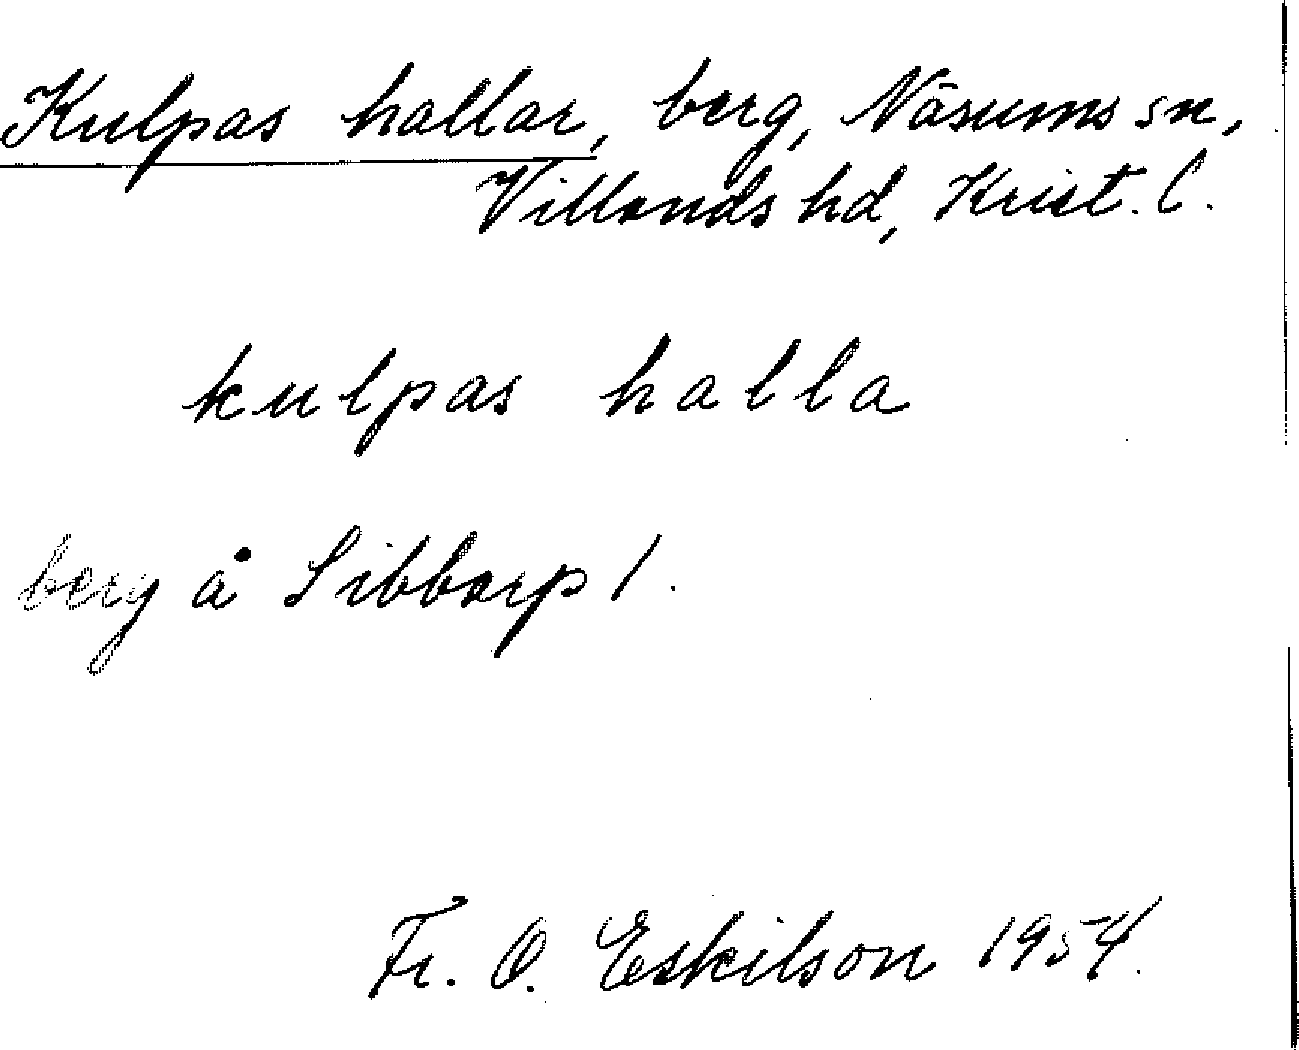 Kulpas hallar, berg, Näsums sn,
Villands hd, Krist. l.
kulpas halla
berg å Sibbarp 1.
Fr. O. Eskilson 1954.